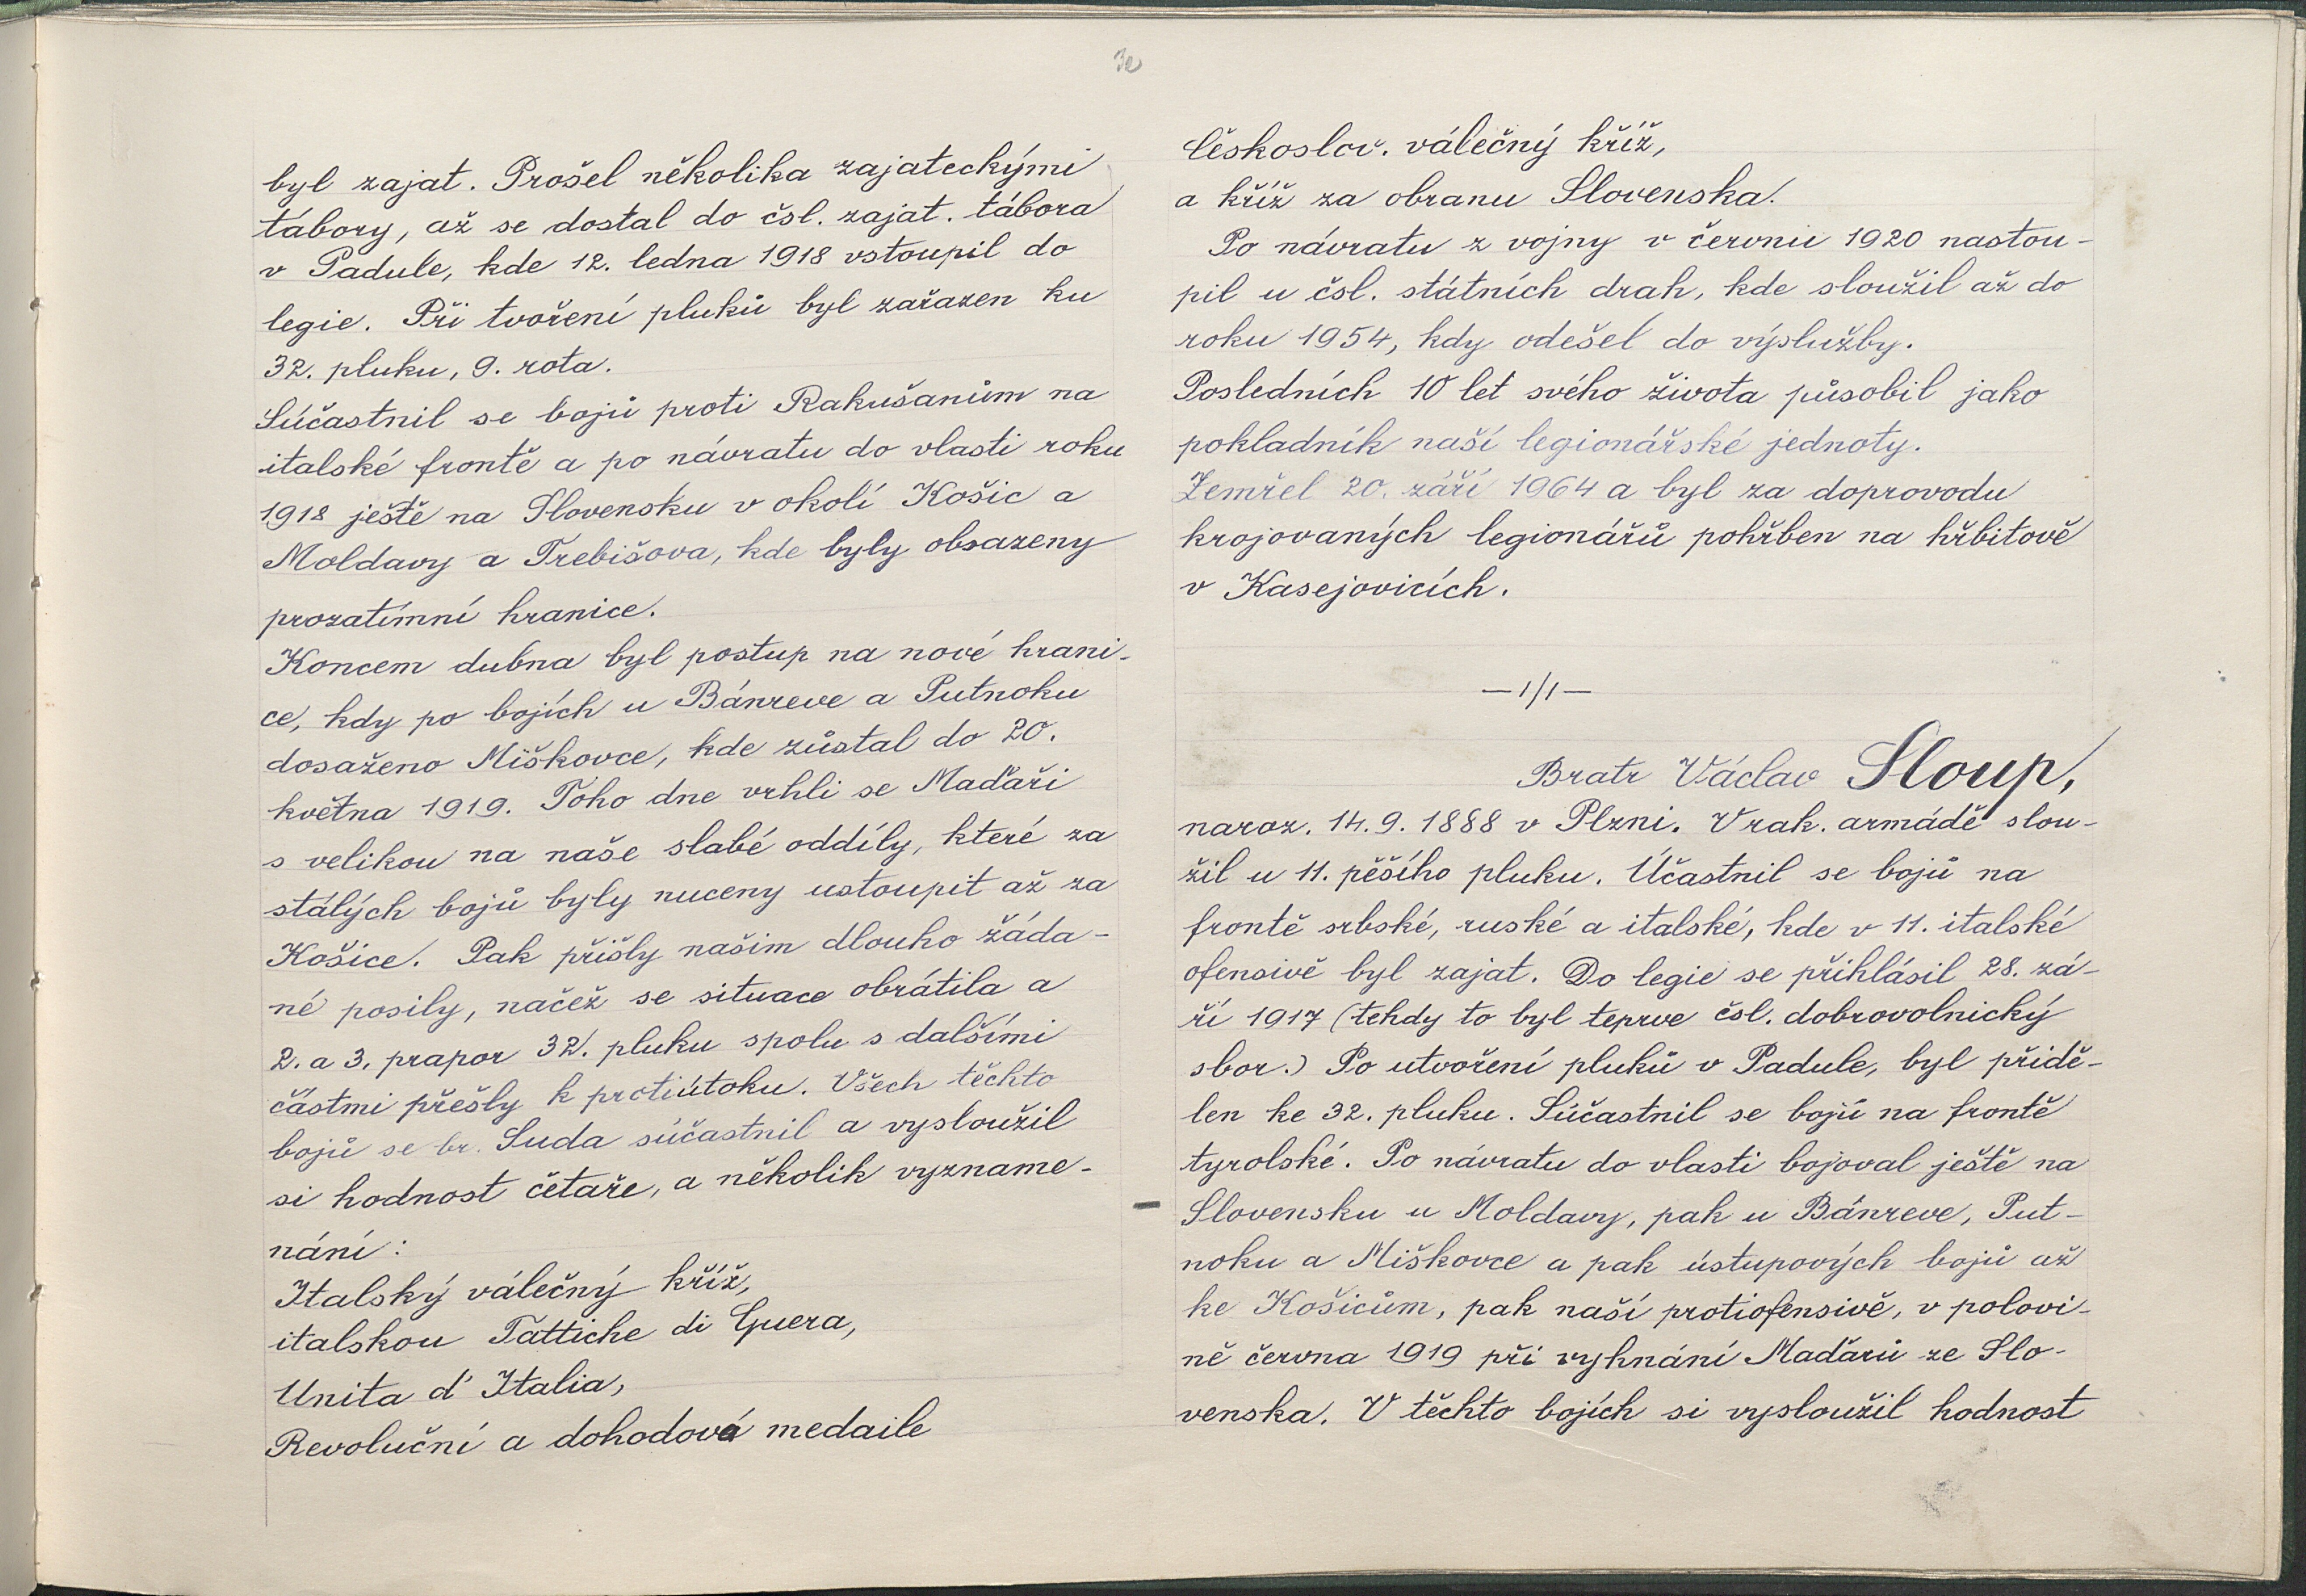 30
byl zajat. Prošel několika zajateckými
tábory, až se dostal do čsl. zajat. tábora
v Padule, kde 12. ledna 1918 vstoupil do
legie. Při tvoření pluků byl zařazen ku
32. pluku, 9. rota.
Súčastnil se bojů proti Rakušanům na
italské frontě a po návratu do vlasti roku
1918 ještě na Slovensku v okolí Košic a
Moldavy a Trebišova, kde byly obsazeny
prozatímní hranice.
Koncem dubna byl postup na nové hrani-
ce, kdy po bojích u Bánreve a Putnoku
dosaženo Miškovce, kde zůstal do 20.
května 1919. Toho dne vrhli se Maďaři
s velikou na naše slabé oddíly, které za
stálých bojů byly nuceny ustoupit až za
Košice. Pak přišly našim dlouho žáda-
né posily, načež se situace obrátila a
2. a 3. prapor 32. pluku spolu s dalšími
částmi přešly k protiútoku. Všech těchto
bojů se br. Suda súčastnil a vysloužil
si hodnost četaře, a několik vyzname-
nání:
Italský válečný kříž,
italskou Fattiche di Guera,
Unita d' Italia,
Revoluční a dohodová medaile
Českoslov. válečný kříž,
a kříž za obranu Slovenska.
Po návratu z vojny v červnu 1920 nastou-
pil u čsl. státních drah, kde sloužil až do
roku 1954, kdy odešel do výslužby.
Posledních 10 let svého života působil jako
pokladník naší legionářské jednoty.
Zemřel 20. září 1964 a byl za doprovodu
krojovaných legionářů pohřben na hřbitově
v Kasejovicích.
—1/1—
Bratr Václav Sloup,
naroz. 14. 9. 1888 v Plzni. V rak. armádě slou-
žil u 11. pěšího pluku. Účastnil se bojů na
frontě srbské, ruské a italské, kde v 11. italské
ofensivě byl zajat. Do legie se přihlásil 28. zá-
ří 1917 (tehdy to byl teprve čsl. dobrovolnický
sbor.) Po utvoření pluků v Padule, byl přidě-
len ke 32. pluku. Súčastnil se bojů na frontě
tyrolské. Po návratu do vlasti bojoval ještě na
Slovensku u Moldavy, pak u Bánreve, Put-
noku a Miškovce a pak ústupových bojů až
ke Košicům, pak naší protiofensivě, v polovi-
ně června 1919 při vyhnání Maďarů ze Slo-
venska. V těchto bojích si vysloužil hodnost